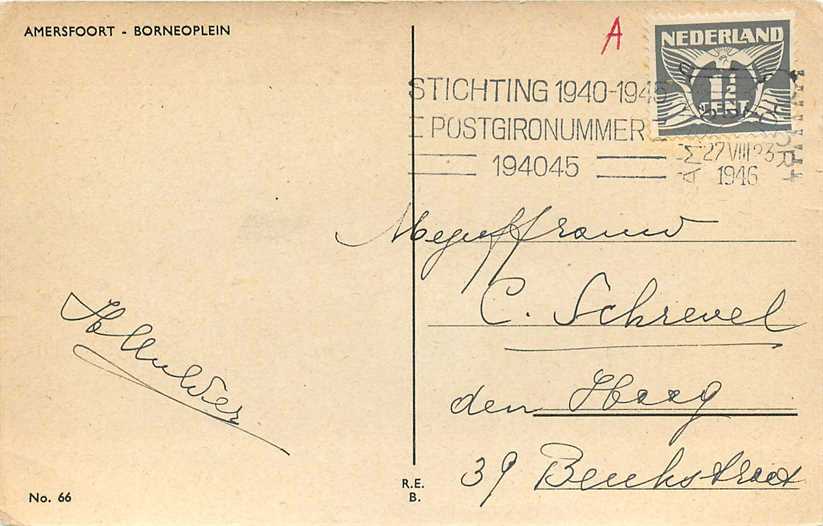 AMERSFOORT - BORNEOPLEIN
A
NEDERLAND
1½
CENT
STICHTING 1940-1945
POSTGIRONUMMER
194045
27 VIII 23
1946
Mejuffrouw
C. Schrevel
den Haag
39
R.E.
B.
No. 66